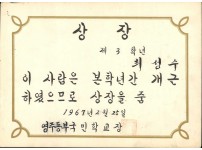 상장
제 3 학년
최성수
이 사람은 본학년간 개근
하였으므로 상장을 줌
1967년 2월 25일
영주동부국민학교장